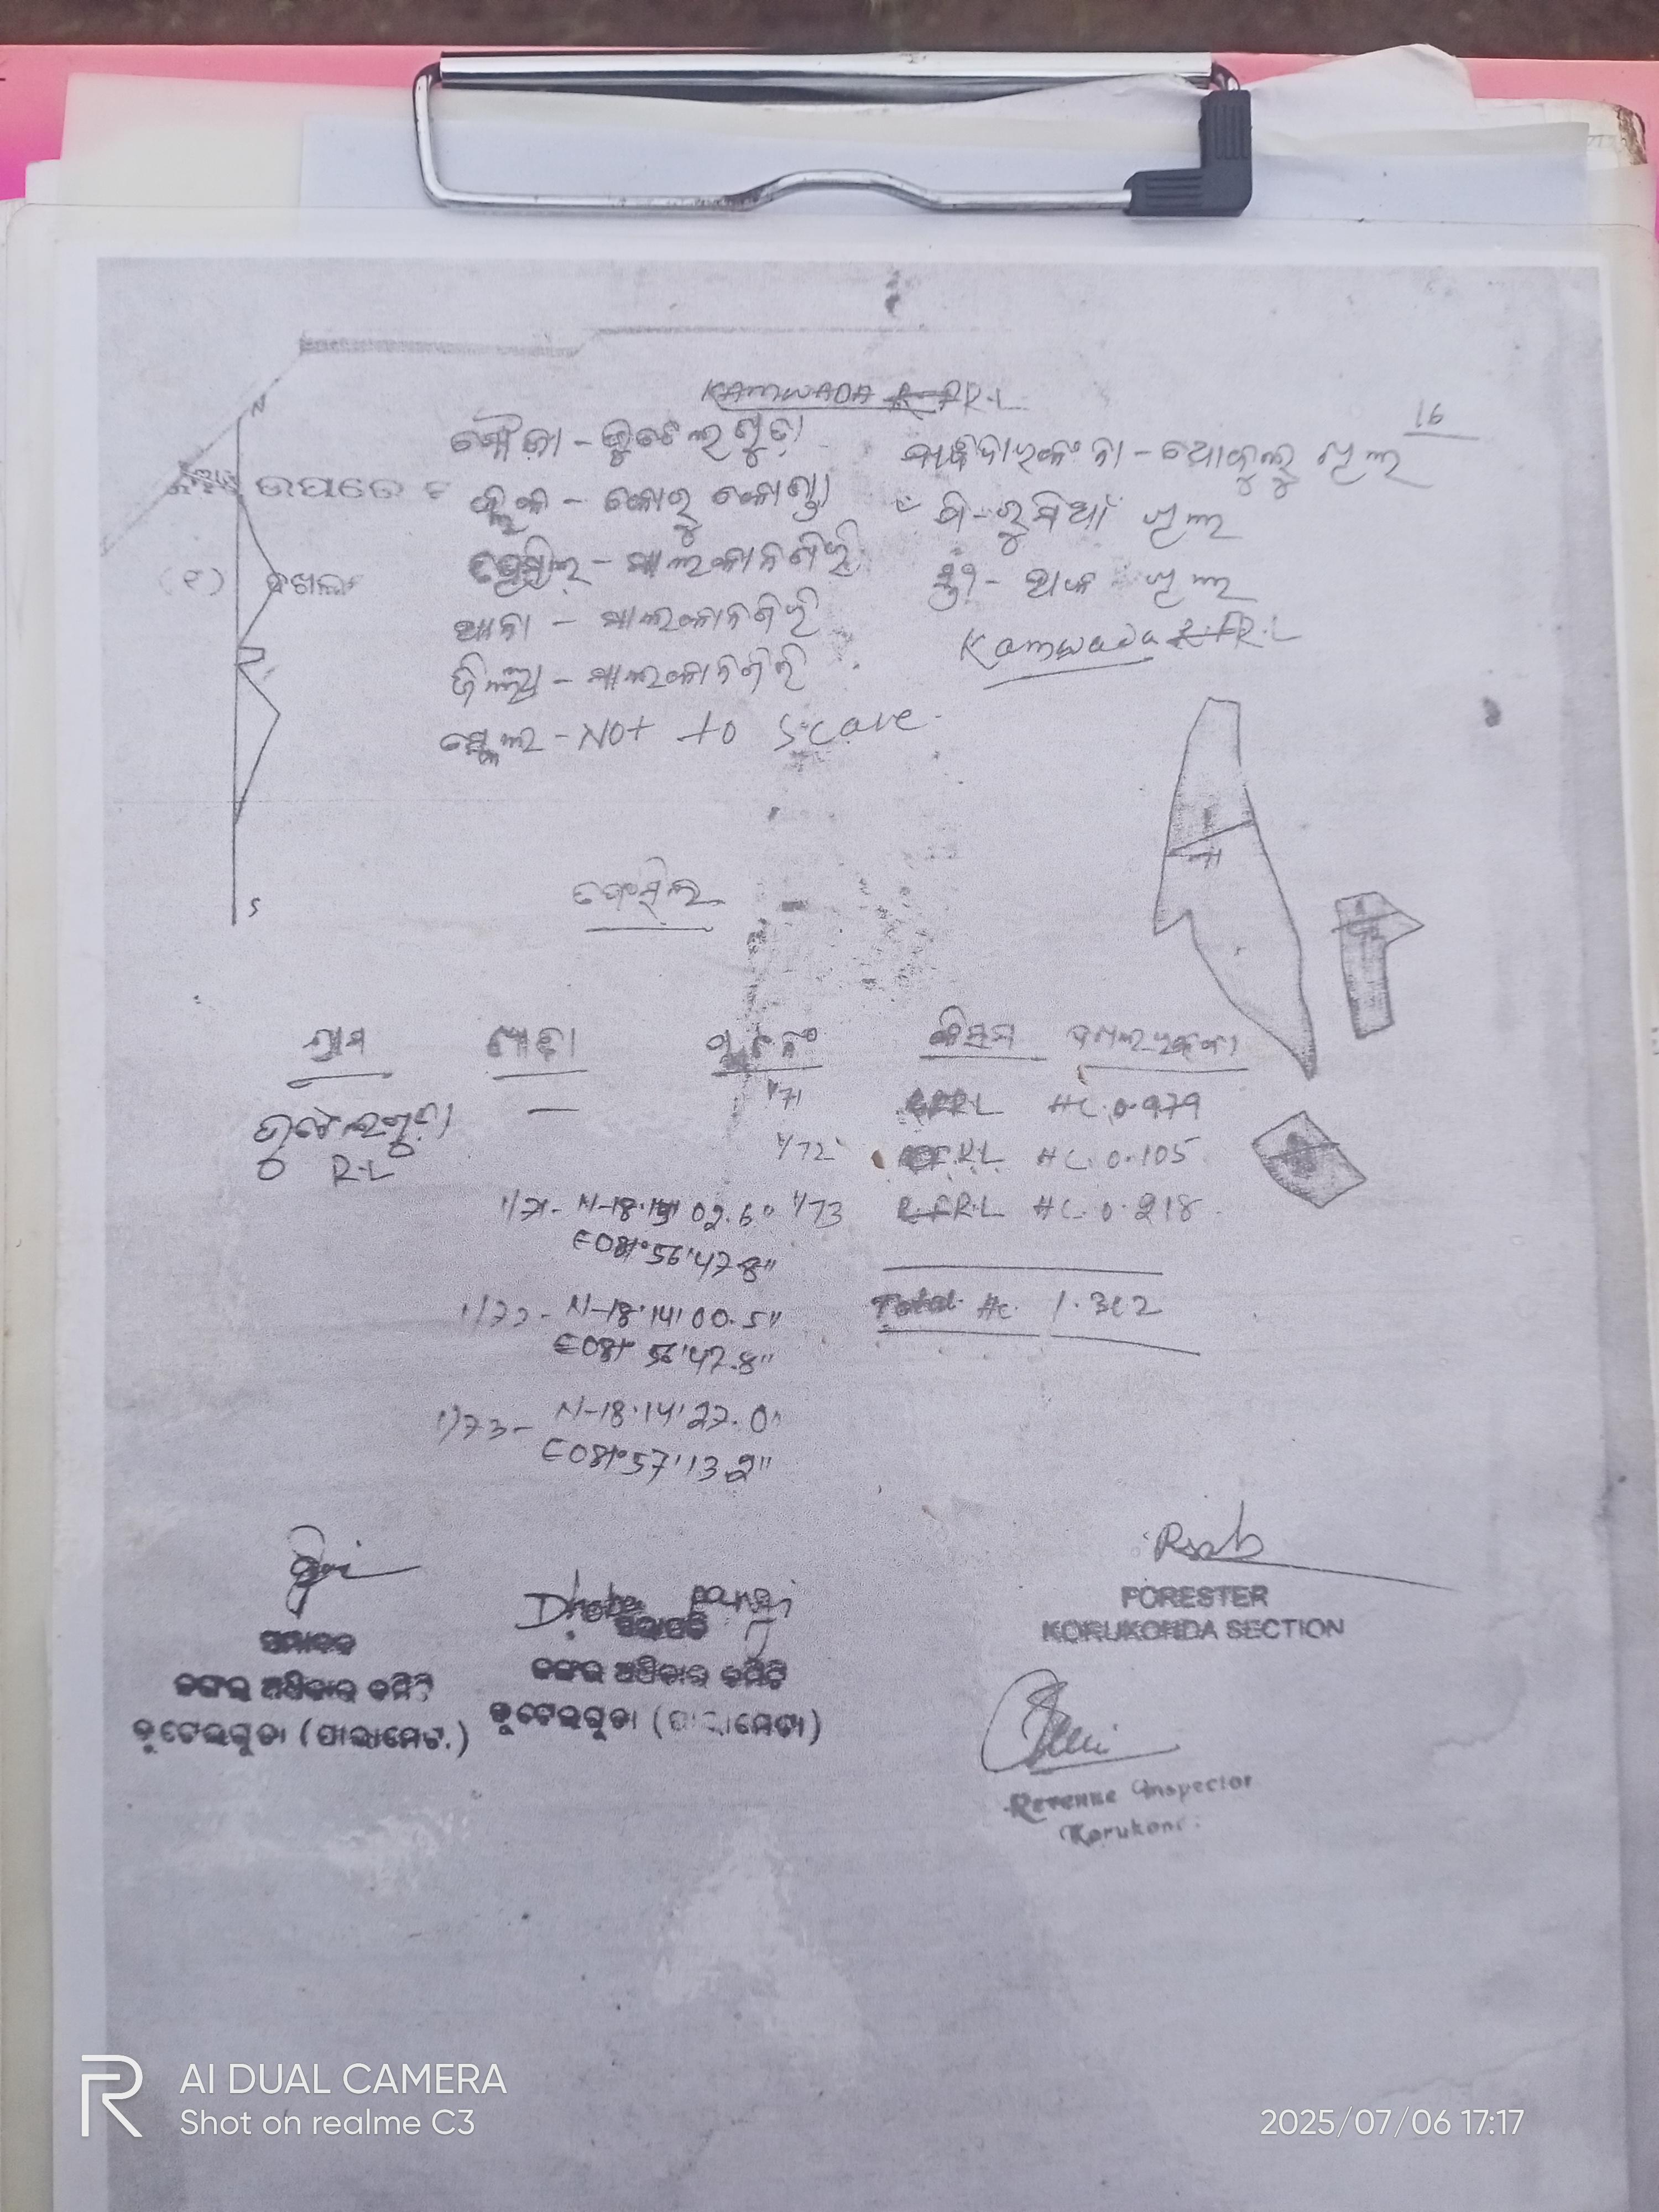 KAMWADA R.F R.L
16
ମୌଜା - କୁଟେଲଗୁଡ଼ା
ବ୍ଲକ - କୋରୁକୋଣ୍ଡା
ତହସିଲ - ମାଲକାନଗିରି
ଥାନା - ମାଲକାନଗିରି
ଜିଲ୍ଲା - ମାଲକାନଗିରି
ସ୍କେଲ - Not to Scale
ଖିଲ
ଖିଲ
ଖିଲ
Kamwada R.F R.L
N
ଉପରେ
(୧) ଦଖଲ
S
ତଫସିଲ
ଗ୍ରାମ ଖାତା ପ୍ଲଟ ନଂ କିସମ
କୁଟେଲଗୁଡ଼ା — 1/71 R.L HC 0.979
R.L 1/72 R.L HC 0.105
1/73 R.F R.L HC 0.218
Total Hc 1.302
1/71- N-18°14'02.6"
E081°56'47.8"
1/72- N-18°14'00.5"
E081°56'47.8"
1/73- N-18°14'27.0"
E081°57'13.2"
Dhaba Pangi
ସମ୍ପାଦକ
ଜଙ୍ଗଲ ଅଧିକାର କମିଟି
କୁଟେଲଗୁଡା (ପାଲାମେଟା)
ସଭାପତି
ଜଙ୍ଗଲ ଅଧିକାର କମିଟି
କୁଟେଲଗୁଡା (ପାଲାମେଟା)
FORESTER
KORUKONDA SECTION
Revenue Inspector
AI DUAL CAMERA
Shot on realme C3
2025/07/06 17:17